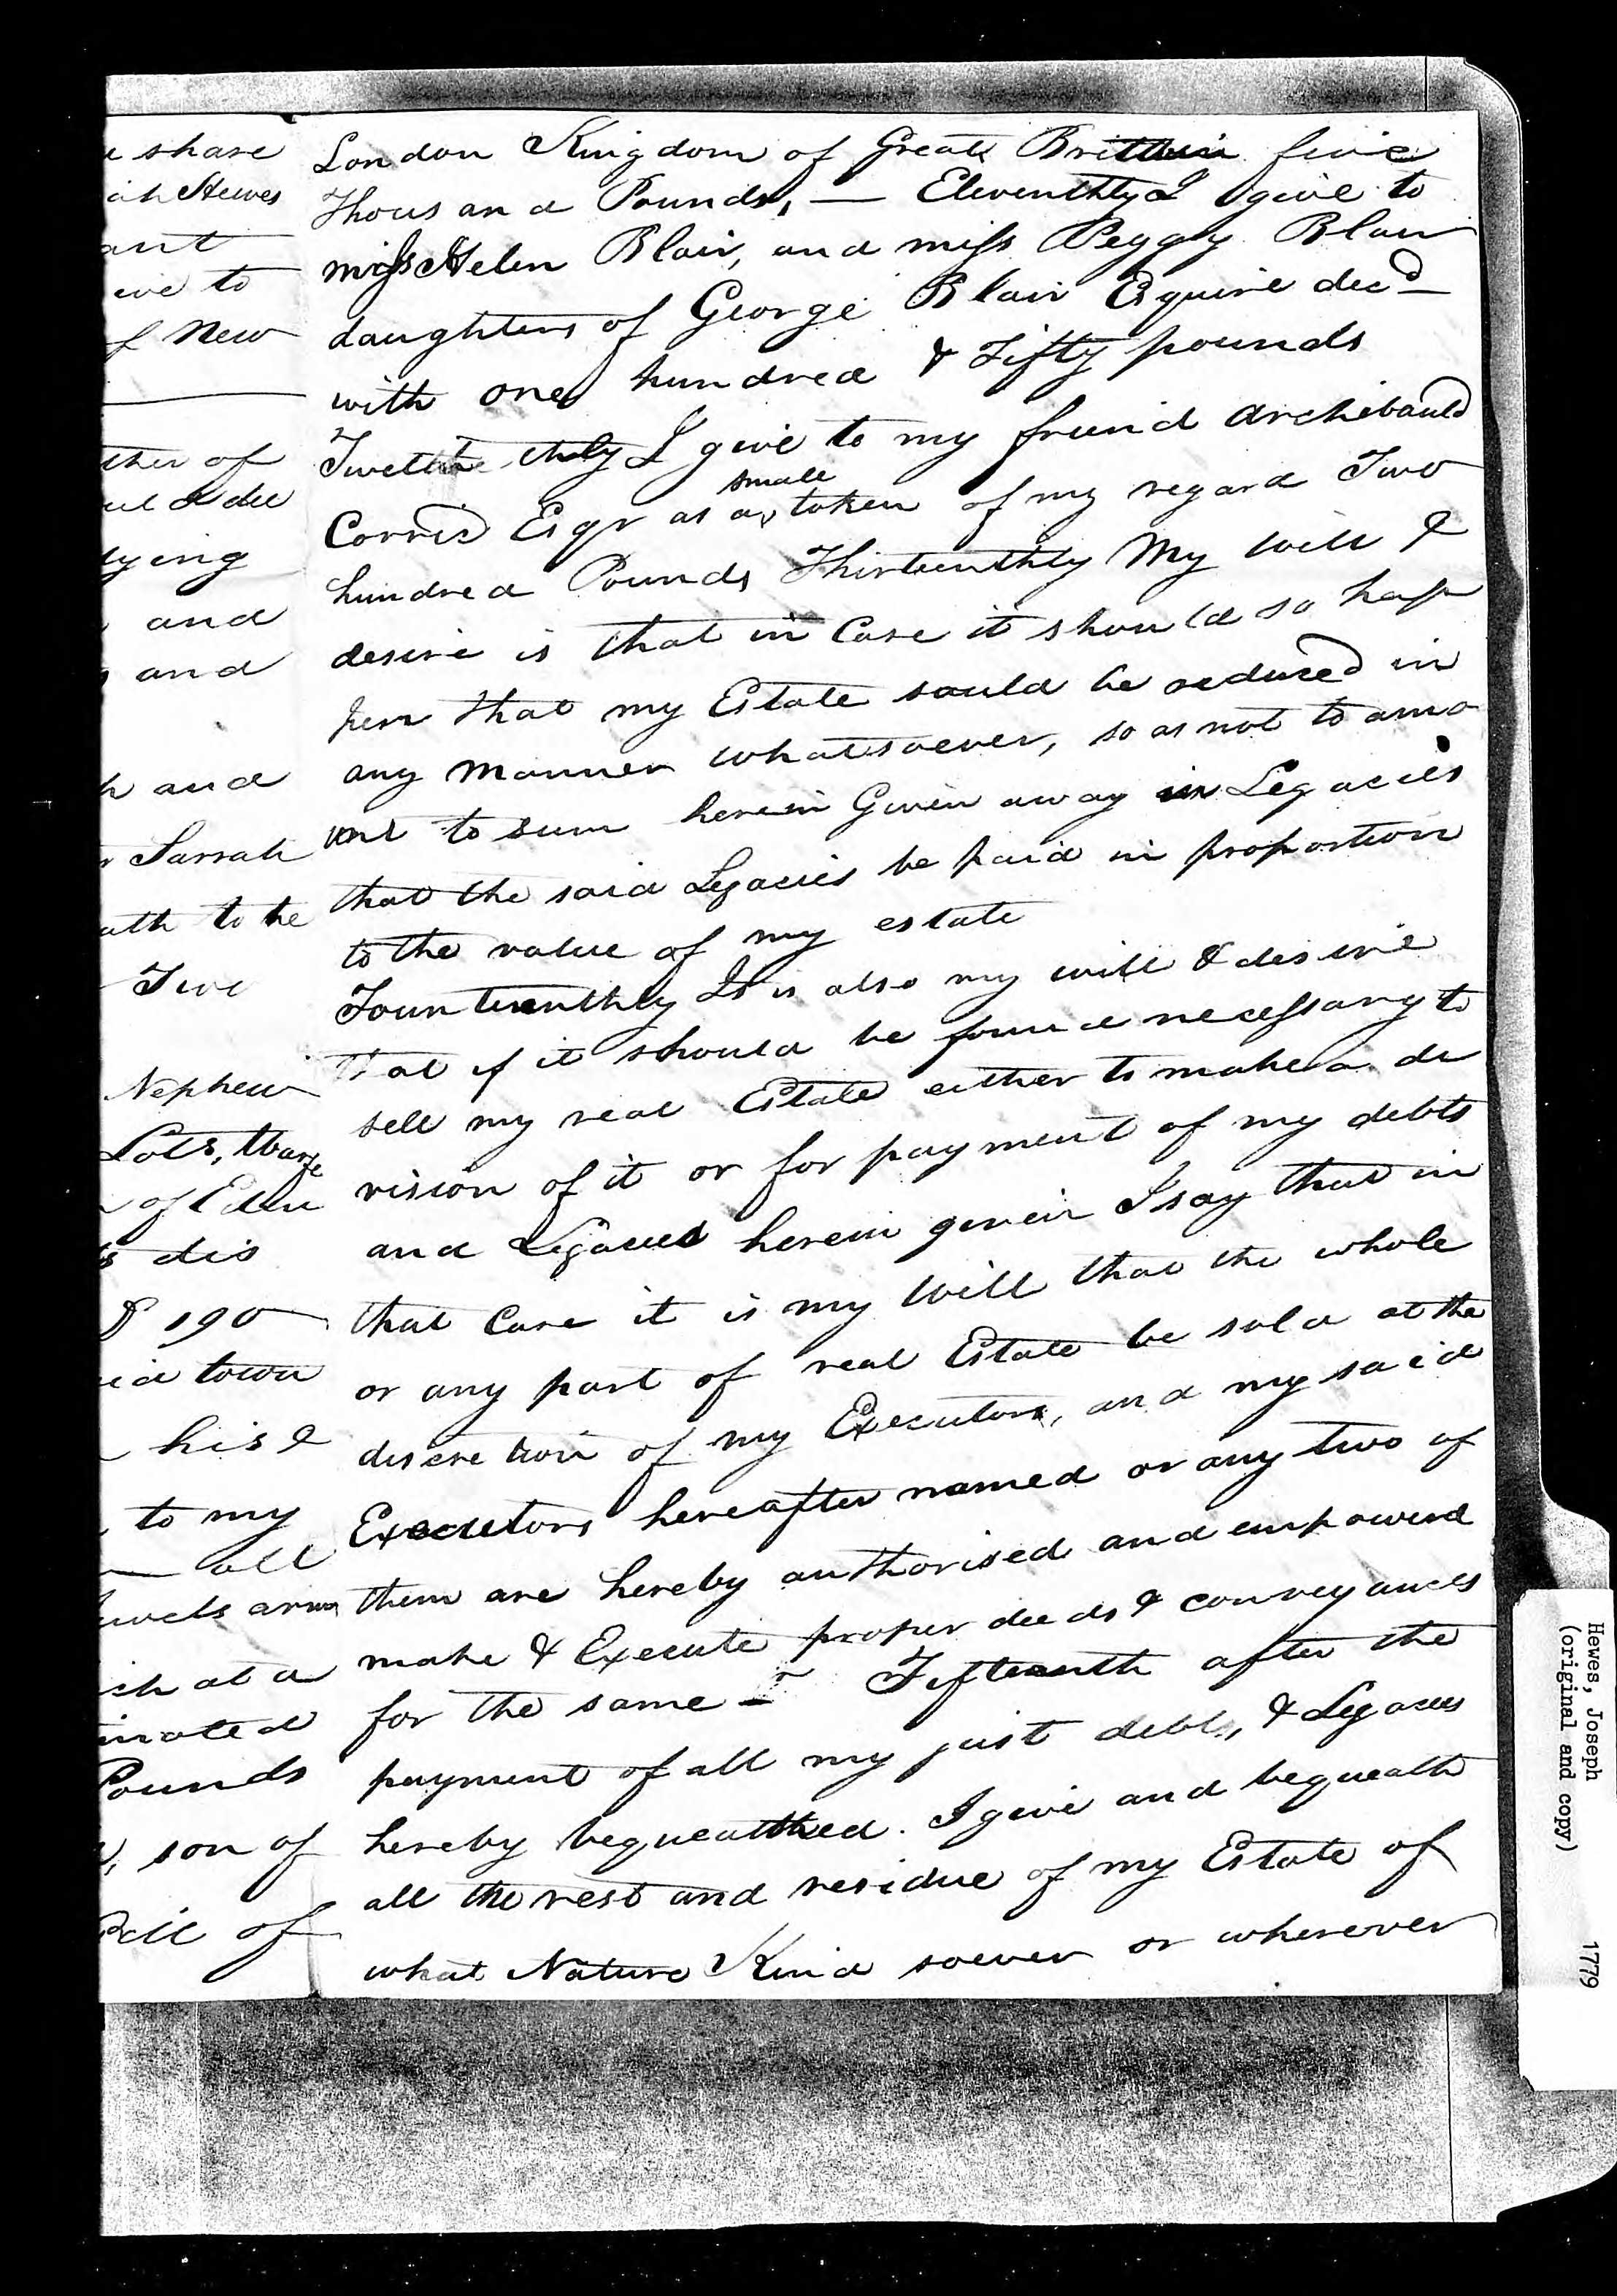 e share
ah Hewes
ant
ive to
f New
ther of
lying
and
and
h and
Sarrah
ath to be
Two
Nephew
Lots, wharfe
of Eden
dis
& 190
id town
his &
to my
all
ch at a
Pounds
son of
of
London Kingdom of Great Brittain five
Thousand Pounds, — Eleventhly I give to
miss Helen Blair, and miss Peggy Blair
daughters of George Blair Esquire decd
with one hundred & Fifty pounds
Twelthly I give to my friend Archibauld
Corrie Esqr as a small token of my regard Two
hundred Pounds Thirteenthly My will &
desire is that in Case it should so hap
pen that my Estate sould be reduced in
any manner whatsoever, so as not to amo
unt to sum herein Given away in Legacies
that the said Legacies be paid in proportion
to the value of my estate
Fourteenthly It is also my will & desire
that if it should be found necessary to
sell my real Estate either to make a de
vision of it or for payment of my debts
and Legacies herein given I say that in
that Case it is my Will that the whole
or any part of real Estate be sold at the
discretion of my Executors, and my said
Executors hereafter named or any two of
them are hereby authorised and empowerd
make & Execute proper deeds & conveyances
for the same — Fifteenth after the
payment of all my just debts, & Legacies
hereby bequeathed. I give and bequeath
all the rest and residue of my Estate of
what Nature Kind soever or wherever
Hewes, Joseph 1779
(original and copy)